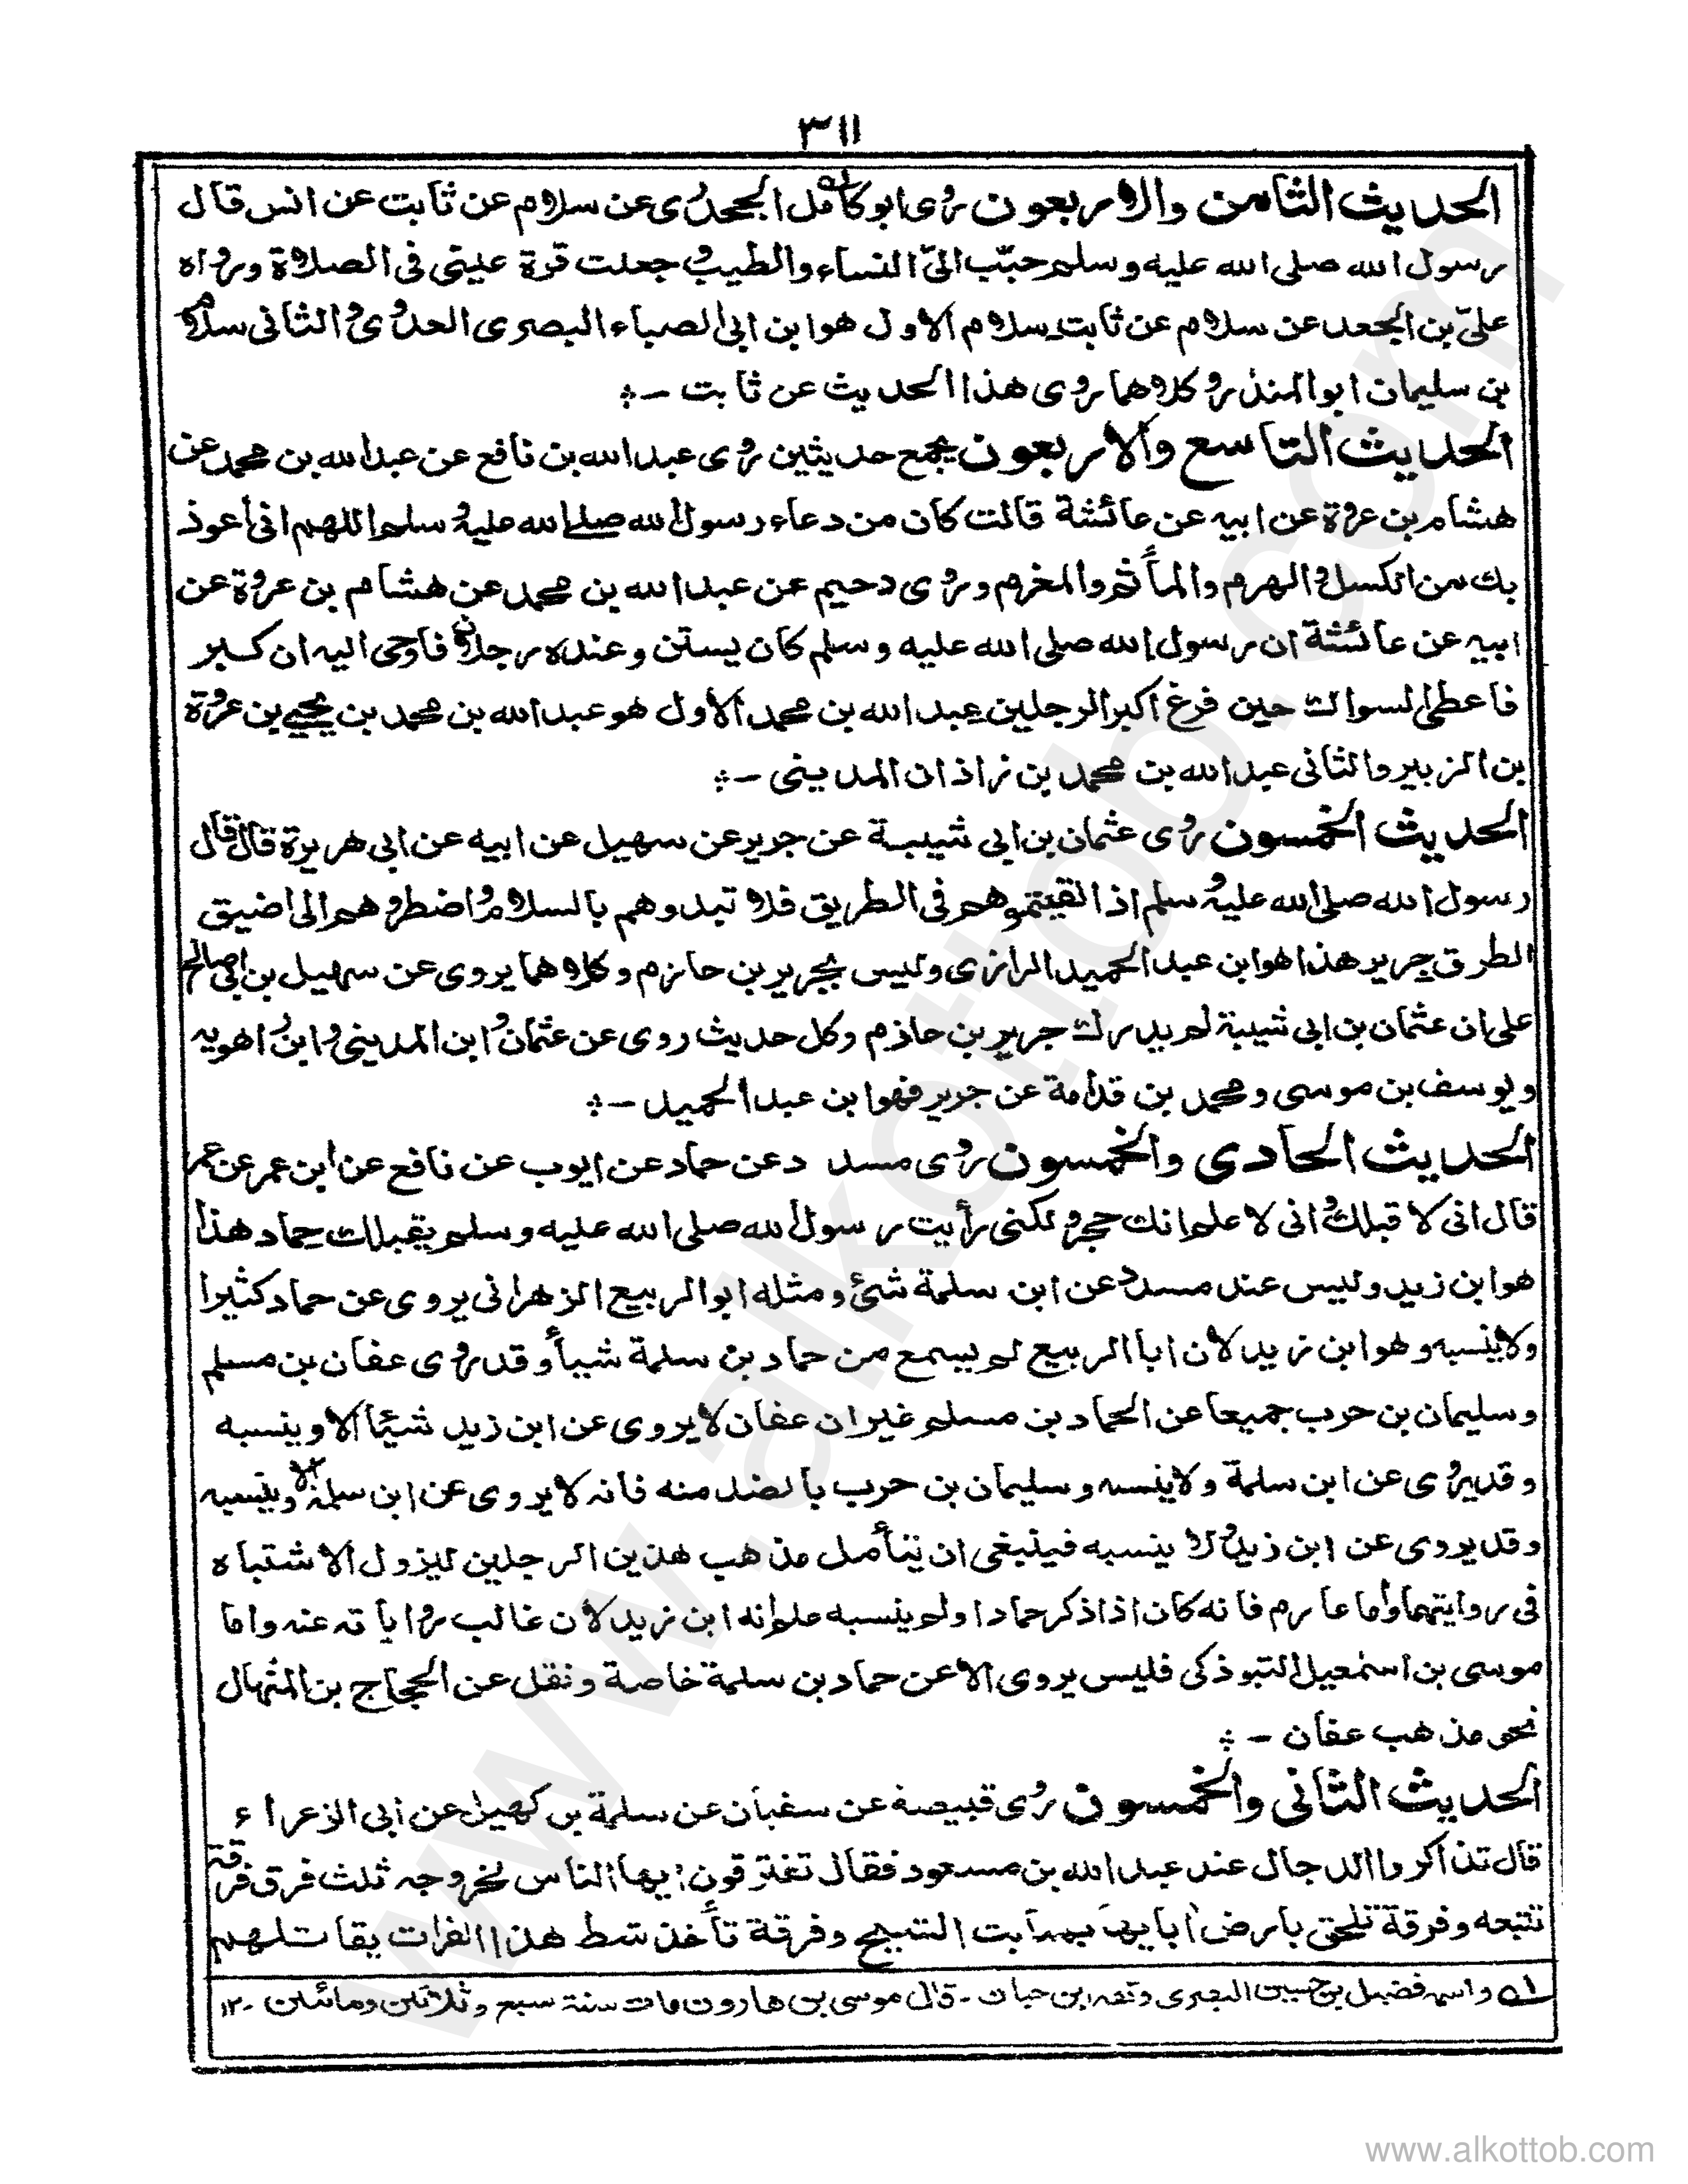 ٣١١
الحديث الثامن والاربعون روى ابو كامل الجحدرى عن سلام عن ثابت عن انس قال
رسول الله صلى الله عليه وسلم حبّب الىّ النساء والطيب وجعلت قرة عينى فى الصلاة ورواه
علىّ بن الجعد عن سلام عن ثابت سلام الاول هو ابن ابى الصباء البصرى العدوى والثانى سلام
بن سليمان ابو المنذر وكلاهما روى هذا الحديث عن ثابت -
الحديث التاسع والاربعون يجمع حديثين روى عبد الله بن نافع عن عبد الله بن محمد عن
هشام بن عروة عن ابيه عن عائشة قالت كان من دعاء رسول الله صلے الله عليه وسلم اللهم انى أعوذ
بك من الكسل والهرم والمأثم والمغرم وروى دحيم عن عبد الله بن محمد عن هشام بن عروة عن
ابيه عن عائشة ان رسول الله صلى الله عليه وسلم كان يستن وعنده رجلان فاوحى اليه ان كبر
فاعطى السواك حين فرغ اكبر الرجلين عبد الله بن محمد الاول هو عبد الله بن محمد بن يحيے بن عروة
بن الزبير والثانى عبد الله بن محمد بن زاذان المدينى -
الحديث الخمسون روى عثمان بن ابى شيبة عن جرير عن سهيل عن ابيه عن ابى هريرة قال قال
رسول الله صلى الله عليه وسلم اذا لقيتموهم فى الطريق فلا تبدوهم بالسلام واضطروهم الى اضيق
الطرق جرير هذا هو ابن عبد الحميد الرازى وليس بجرير بن حازم وكلاهما يروى عن سهيل بن ابى صالح
على ان عثمان بن ابى شيبة لم يدرك جرير بن حاذم وكل حديث روى عن عثمان وابن المدينى وابن راهويه
ويوسف بن موسى ومحمد بن قدامة عن جرير فهو ابن عبد الحميد -
الحديث الحادى والخمسون روى مسدد عن حماد عن ايوب عن نافع عن ابن عمر عن عمر
قال انى لاقبلك وانى لاعلم انك حجر ولكنى رأيت رسول الله صلى الله عليه وسلم يقبلك حماد هذا
هو ابن زيد وليس عند مسدد عن ابن سلمة شئ ومثله ابو الربيع الزهرانى يروى عن حماد كثيرا
ولا ينسبه وهو ابن زيد لان ابا الربيع لم يسمع من حماد بن سلمة شيأ وقد روى عفان بن مسلم
وسليمان بن حرب جميعا عن الحماد بن مسلم غير ان عفان لا يروى عن ابن زيد شيئا الا وينسبه
وقد يروى عن ابن سلمة ولا ينسبه وسليمان بن حرب بالضد منه فانه لا يروى عن ابن سلمة الا وينسبه
وقد يروى عن ابن زيد ولا ينسبه فينبغى ان يتأمل مذهب هذين الرجلين ليزول الاشتباه
فى روايتهما واما عارم فانه كان اذا ذكر حمادا ولم ينسبه علم انه ابن زيد لان غالب رواياته عنه واما
موسى بن اسمٰعيل التبوذكى فليس يروى الا عن حماد بن سلمة خاصة ونقل عن الحجاج بن المنهال
نحو مذهب عفان -
الحديث الثانى والخمسون روى قبيصة عن سفيان عن سلمة بن كهيل عن أبى الزعراء
قال تذاكروا الدجال عند عبد الله بن مسعود فقال تفترقون ايها الناس لخروجه ثلث فرق فرقة
تتبعه وفرقة تلحق بارض ابايها بمنابت الشيح وفرقة تأخذ شط هذا الفرات يقاتلهم
ا۵ واسمه فضيل بن حسين البصرى وثقه ابن حبان - قال موسى بن هارون مات سنة سبع وثلاثين ومائتين -١٢
www.alkottob.com
www.alkottob.com